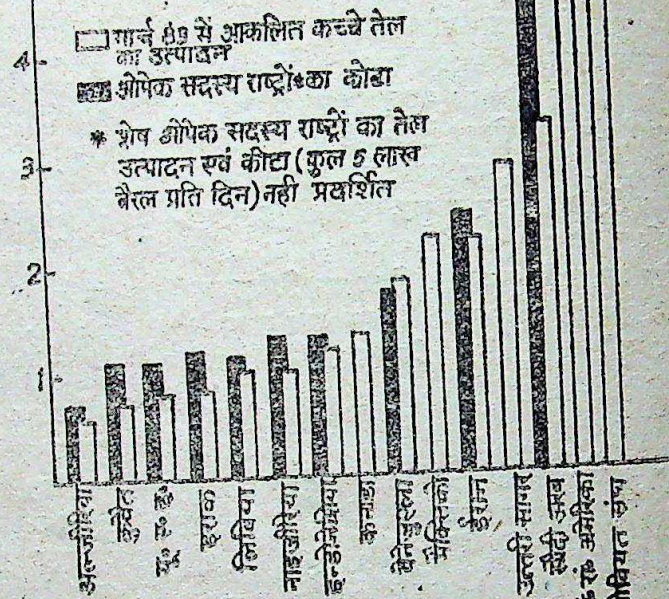 4
मार्च 89 में आकलित कच्चे तेल
का उत्पादन
ओपेक सदस्य राष्ट्रों का कोटा
* शेष ओपेक सदस्य राष्ट्रों का तेल
उत्पादन एवं कोटा (कुल 5 लाख
बैरल प्रति दिन) नही प्रदर्शित
3
2
1
अल्जीरिया
कुवैत
यू. ए. इ.
इराक
लिबिया
नाइजीरिया
इन्डोनेशिया
कनाडा
वेनेजुएला
मैक्सिको
ईरान
उत्तरी सागर
सऊदी अरब
रा. अमेरिका